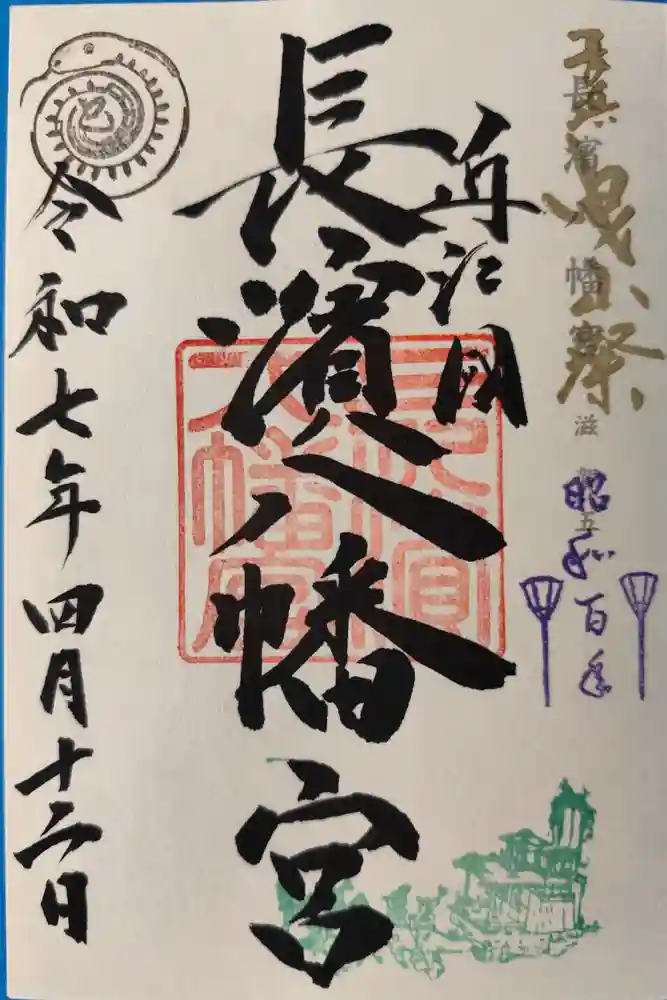 長濱八幡宮
曳山祭
滋
五
昭和百年
近江國
長濱八幡宮
長濱八幡宮
巳
令和七年四月十二日